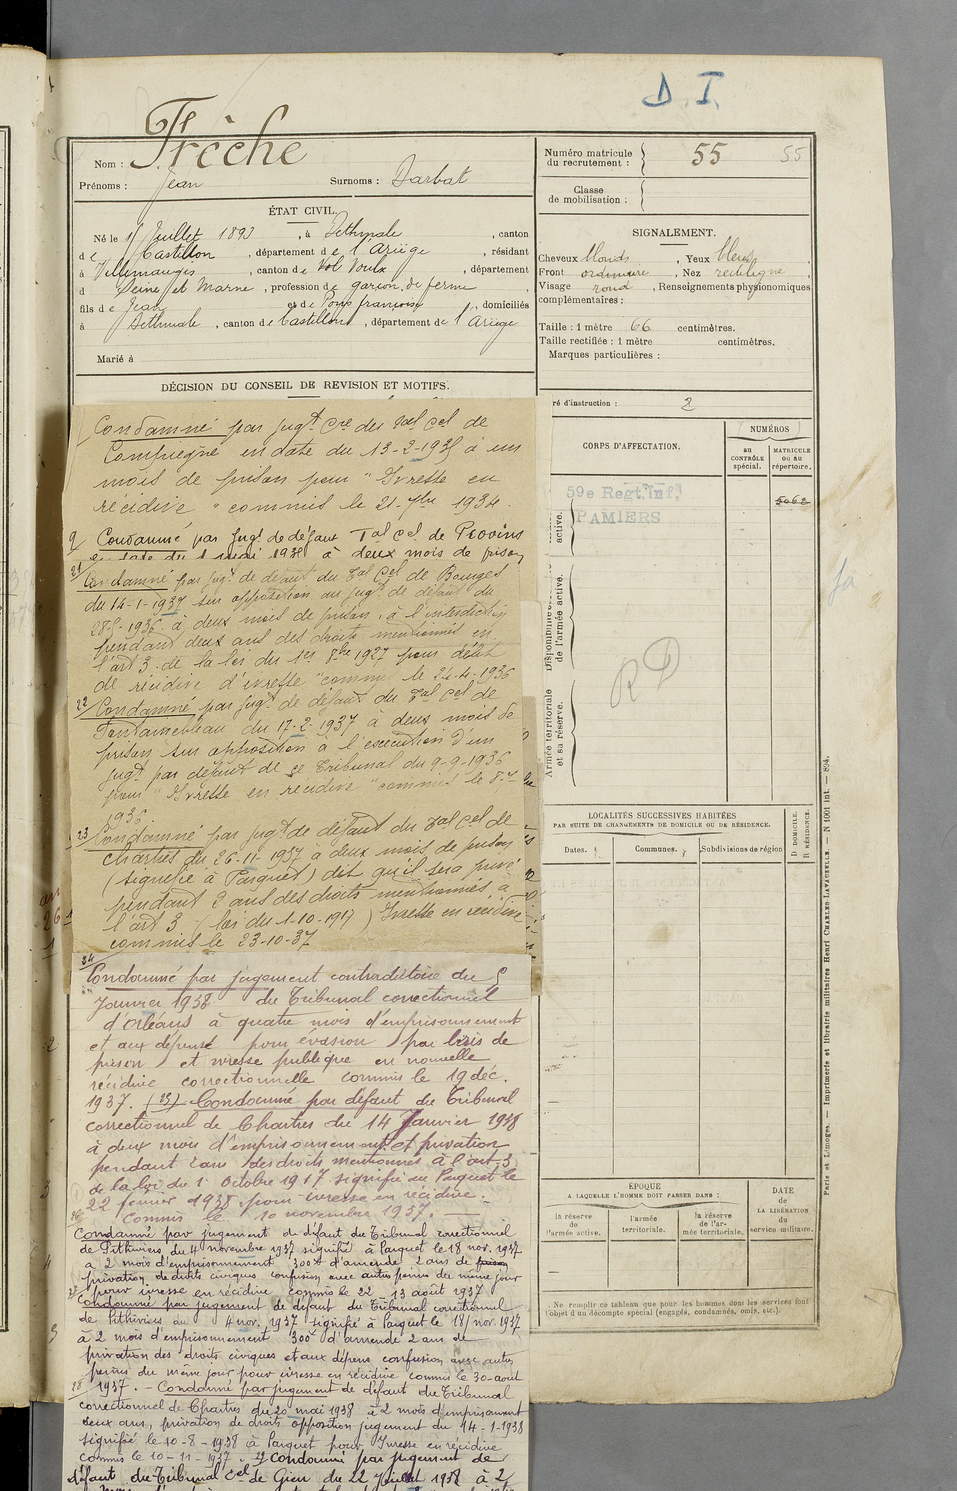 D. I.
Nom : Frèche
Prénoms : Jean Surnoms : Darbat
Numéro matricule du recrutement : 55 55
Classe de mobilisation :
ÉTAT CIVIL.
Né le 1 Juillet 1893, à Bethmale, canton
de Castillon, département de l'Ariège, résidant
à Villemauges, canton de, département
d Seine et Marne, profession de garçon de ferme
fils de Jean et de Pons françoise, domiciliés
à Bethmale, canton de Castillon, département de l'Ariège
Marié à
SIGNALEMENT.
Cheveux blonds, Yeux bleus,
Front ordinaire, Nez rectiligne,
Visage rond, Renseignements physionomiques
complémentaires :
Taille : 1 mètre 66 centimètres.
Taille rectifiée : 1 mètre centimètres.
Marques particulières :
DÉCISION DU CONSEIL DE REVISION ET MOTIFS.
ré d'instruction : 2
Condamné par jugt cre du Tal Cel de
Compiègne en date du 13-2-1935 à un
mois de prison pour "Ivresse en
récidive" commis le 21-7bre 1934
Condamné par Jugt de défaut Tal Cel de Provins
à deux mois de prison
21/ Condamné par jugt de défaut du Tal Cel de Bourges
du 14-1-1937 sur opposition au jugt de défaut du
à deux mois de prison, à l'interdiction
pendant deux ans des droits mentionnés en
l'art 3 de la loi du 1er 8bre 1917 pour délit
de récidive d'ivresse "commis le 22-4-1936
22/ Condamné par jugt de défaut du Tal Cel de
Fontainebleau du 17-2-1937 à deux mois de
prison sur opposition à l'exécution d'un
jugt par défaut de ce Tribunal du 9-9-1936
pour "Ivresse en récidive" commis le
1936.
23/ Condamné par jugt de défaut du Tal Cel de
Chartres du 26-11-1937 à deux mois de prison
(signifié à Parquet) dit qu'il sera privé
pendant 2 ans des droits mentionnés à
l'art 3 (loi du 1-10-1917) Ivresse en récidive
commis le 23-10-37
24 Condamné par jugement contradictoire du 5
Janvier 1938 du Tribunal correctionnel
d'Orléans à quatre mois d'emprisonnement
et aux dépens pour évasion par bris de
prison et ivresse publique en nouvelle
récidive correctionnelle commis le 19 déc.
1937. (25) Condamné par défaut du Tribunal
correctionnel de Chartres du 14 Janvier 1938
à deux mois d'emprisonnement et privation
pendant 2 ans des droits mentionnés à l'art 3
de la loi du 1 Octobre 1917 signifié au Parquet le
22 février 1938 pour ivresse en récidive.
Commis le 10 novembre 1937.
26 Condamné par jugement de défaut du Tribunal correctionnel
de Pithiviers du 4 novembre 1937 signifié à Parquet le 18 nov. 1937
à 2 mois d'emprisonnement 300f d'amende 2 ans de
privation de droits civiques confusion avec autres peines du même jour
pour ivresse en récidive commis le 22-13 août 1937
27 Condamné par jugement de défaut du Tribunal correctionnel
de Pithiviers du 4 nov. 1937 signifié à Parquet le 18/nov. 1937
à 2 mois d'emprisonnement 300f d'amende 2 ans de
privation des droits civiques et aux dépens confusion avec autres
peines du même jour pour ivresse en récidive commis le 30-août
28 1937. - Condamné par jugement de défaut du Tribunal
correctionnel de Chartres du 20 mai 1938 à 2 mois d'emprisonnement
deux ans, privation de droits opposition jugement du 14-1-1938
signifié le 10-8-1938 à Parquet pour Ivresse en récidive
commis le 10-11-1937. 29 Condamné par jugement de
défaut du Tribunal Cel de Gien du 22 Juillet 1938 à 2
CORPS D'AFFECTATION.
NUMÉROS
au CONTRÔLE spécial.
MATRICULE ou au répertoire.
59e Regt. Inf.
PAMIERS
5062
active.
Disponibilité
de l'armée active.
Armée territoriale
et sa réserve.
RD
LOCALITÉS SUCCESSIVES HABITÉES
PAR SUITE DE CHANGEMENTS DE DOMICILE OU DE RÉSIDENCE.
D DOMICILE.
R RÉSIDENCE.
Dates. Communes. Subdivisions de région
ÉPOQUE
A LAQUELLE L'HOMME DOIT PASSER DANS :
la réserve de l'armée active.
l'armée territoriale.
la réserve de l'armée territoriale.
DATE de LA LIBÉRATION du service militaire.
Ne remplir ce tableau que pour les hommes dont les services font
l'objet d'un décompte spécial (engagés, condamnés, omis, etc.).
Paris et Limoges. — Imprimerie et librairie militaires Henri CHARLES-LAVAUZELLE. — N 1001 int. — 894.